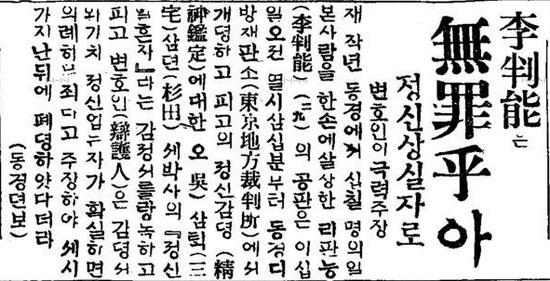 李判能는
無罪乎아
정신상실자로
변호인이극력주장
재작년 동경에서 십칠 명의일
본사람을 한손에살상한 리판능
(李判能) (二九)의 공판은 이십
일오전 열시삼십분부터 동경디
방재판소(東京地方裁判所)에서
개뎡하고 피고의 정신감뎡 (精
神鑑定)에대한 오(吳) 삼퇵(三
宅) 삼뎐(杉田) 세박사의 『정신
다는 감뎡서를랑독하고
피고 변호인(辯護人)은 감뎡서
와가치 정신업는자가 확실하면
의례히무죄라고 주장하야 세시
가지난뒤에 폐뎡하얏다더라
(동경뎐보)